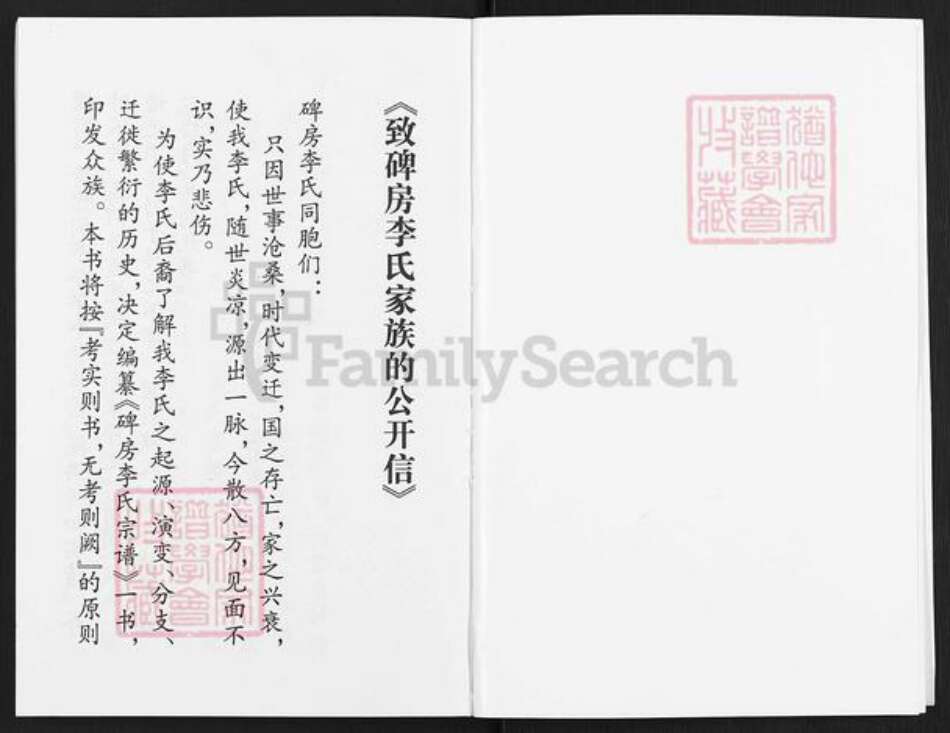 猶他家
譜學會
收藏
《致碑房李氏家族的公开信》
碑房李氏同胞们：
只因世事沧桑，时代变迁，国之存亡，家之兴衰，
使我李氏，随世炎凉，源出一脉，今散八方，见面不
识，实乃悲伤。
为使李氏后裔了解我李氏之起源、演变、分支、
迁徙繁衍的历史，决定编纂《碑房李氏宗谱》一书，
印发众族。本书将按『考实则书，无考则阙』的原则
猶他家
譜學會
收藏
FamilySearch